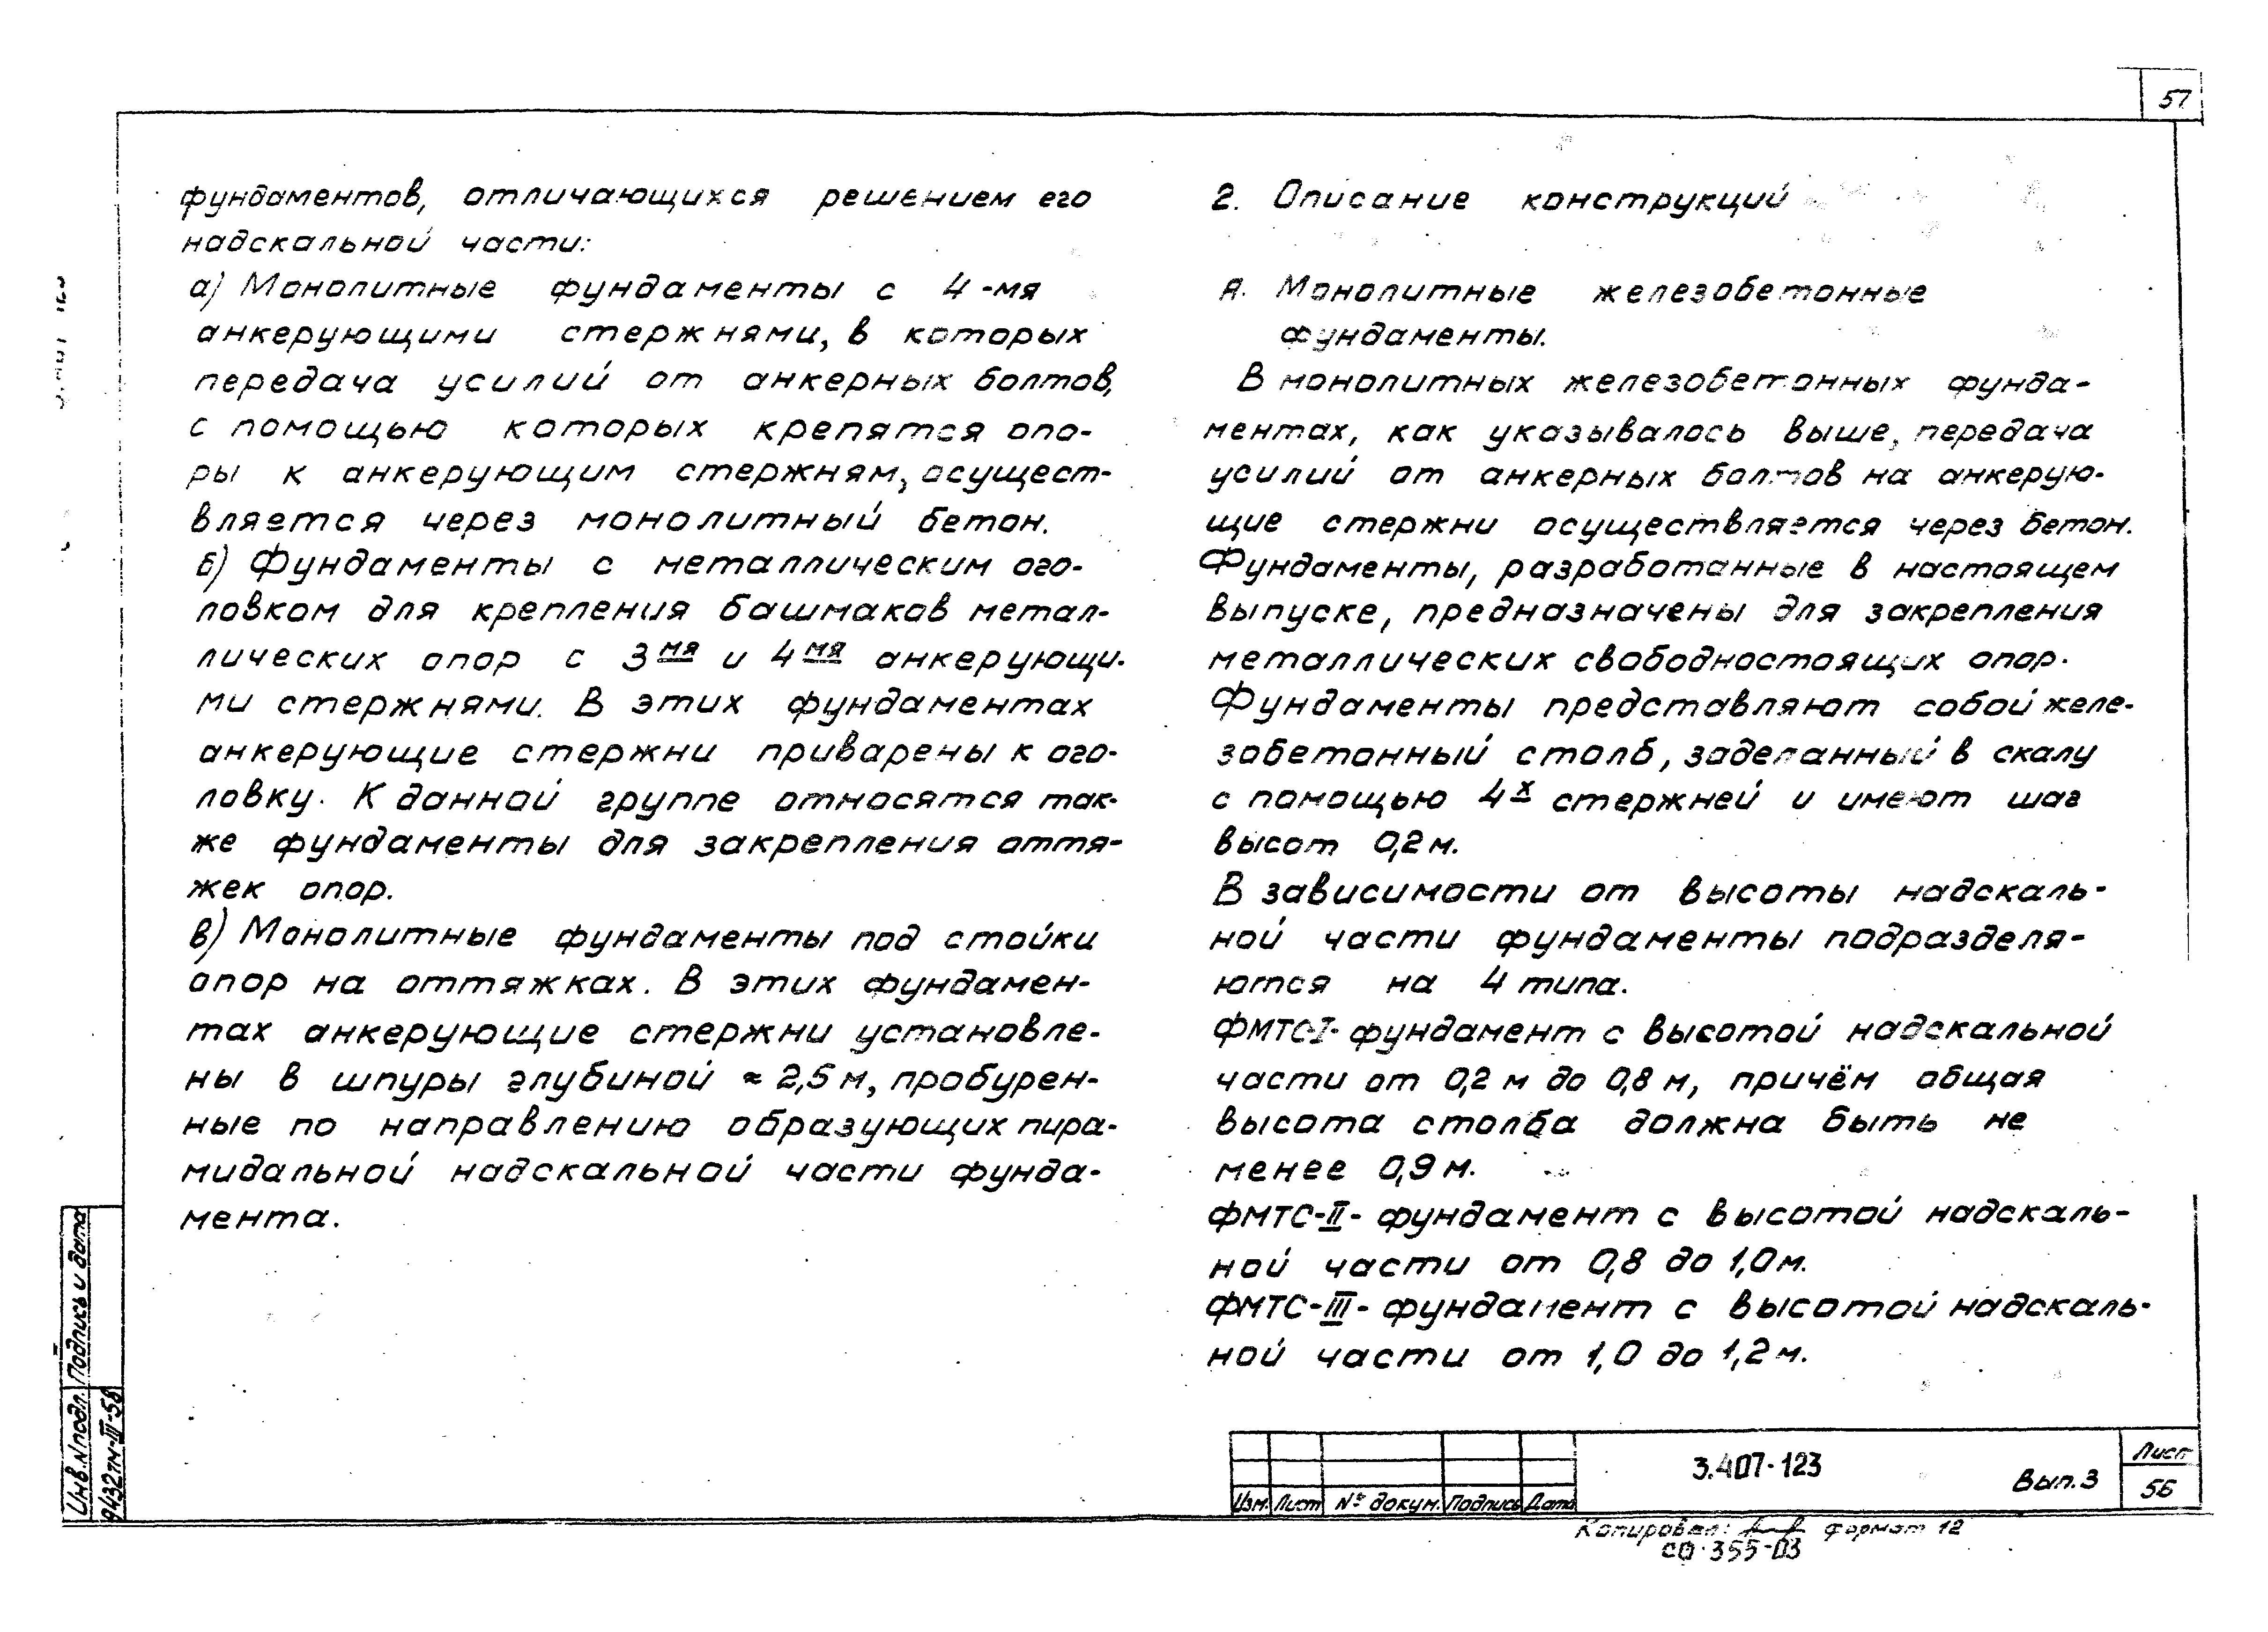 57
фундаментов, отличающихся решением его
надскальной части:
а) Монолитные фундаменты с 4-мя
анкерующими стержнями, в которых
передача усилий от анкерных болтов,
с помощью которых крепятся опо-
ры к анкерующим стержням, осущест-
вляется через монолитный бетон.
б) Фундаменты с металлическим ого-
ловком для крепления башмаков метал-
лических опор с 3мя и 4мя анкерующи-
ми стержнями. В этих фундаментах
анкерующие стержни приварены к ого-
ловку. К данной группе относятся так-
же фундаменты для закрепления оттяжек-
жек опор.
в) Монолитные фундаменты под стойки
опор на оттяжках. В этих фундамен-
тах анкерующие стержни установле-
ны в шпуры глубиной ≈ 2,5 м, пробурен-
ные по направлению образующих пира-
мидальной надскальной части фунда-
мента.
2. Описание конструкций
А. Монолитные железобетонные
фундаменты.
В монолитных железобетонных фунда-
ментах, как указывалось выше, передача
усилий от анкерных болтов на анкерую-
щие стержни осуществляется через бетон.
Фундаменты, разработанные в настоящем
выпуске, предназначены для закрепления
металлических свободностоящих опор.
Фундаменты представляют собой желе-
зобетонный столб, заделанный в скалу
с помощью 4х стержней и имеют шаг
высот 0,2 м.
В зависимости от высоты надскаль-
ной части фундаменты подразделя-
ются на 4 типа.
ФМТС-I- фундамент с высотой надскальной
части от 0,2 м до 0,8 м, причём общая
высота столба должна быть не
менее 0,9 м.
ФМТС-II- фундамент с высотой надскаль-
ной части от 0,8 до 1,0 м.
ФМТС-III- фундамент с высотой надскаль-
ной части от 1,0 до 1,2 м.
Инв. N подл. Подпись и дата
9432тм-III-58
Изм. Лист № докум. Подпись Дата
3.407-123
Вып. 3
Лист
56
Копировал: формат 12
СФ 355-03